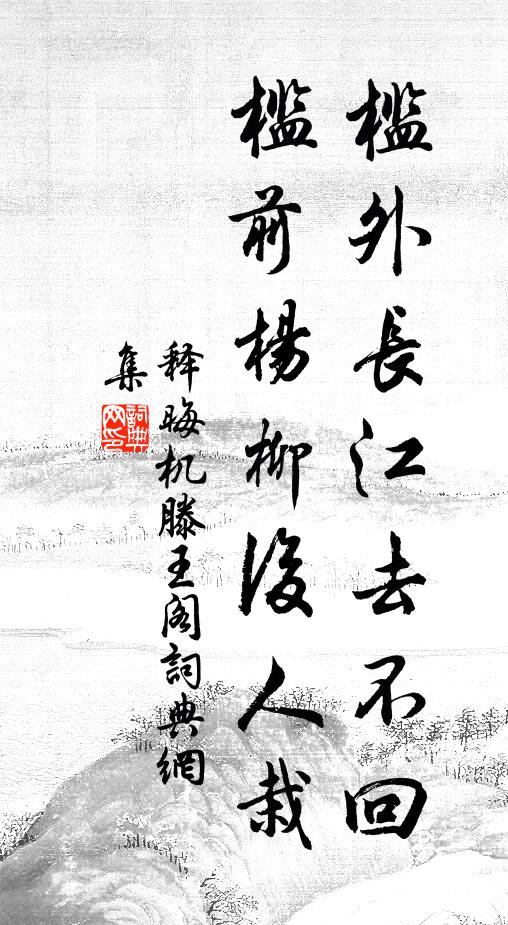 檻外長江去不回
檻前楊柳後人栽
释晦机滕王阁詞典網
集
詞典网印